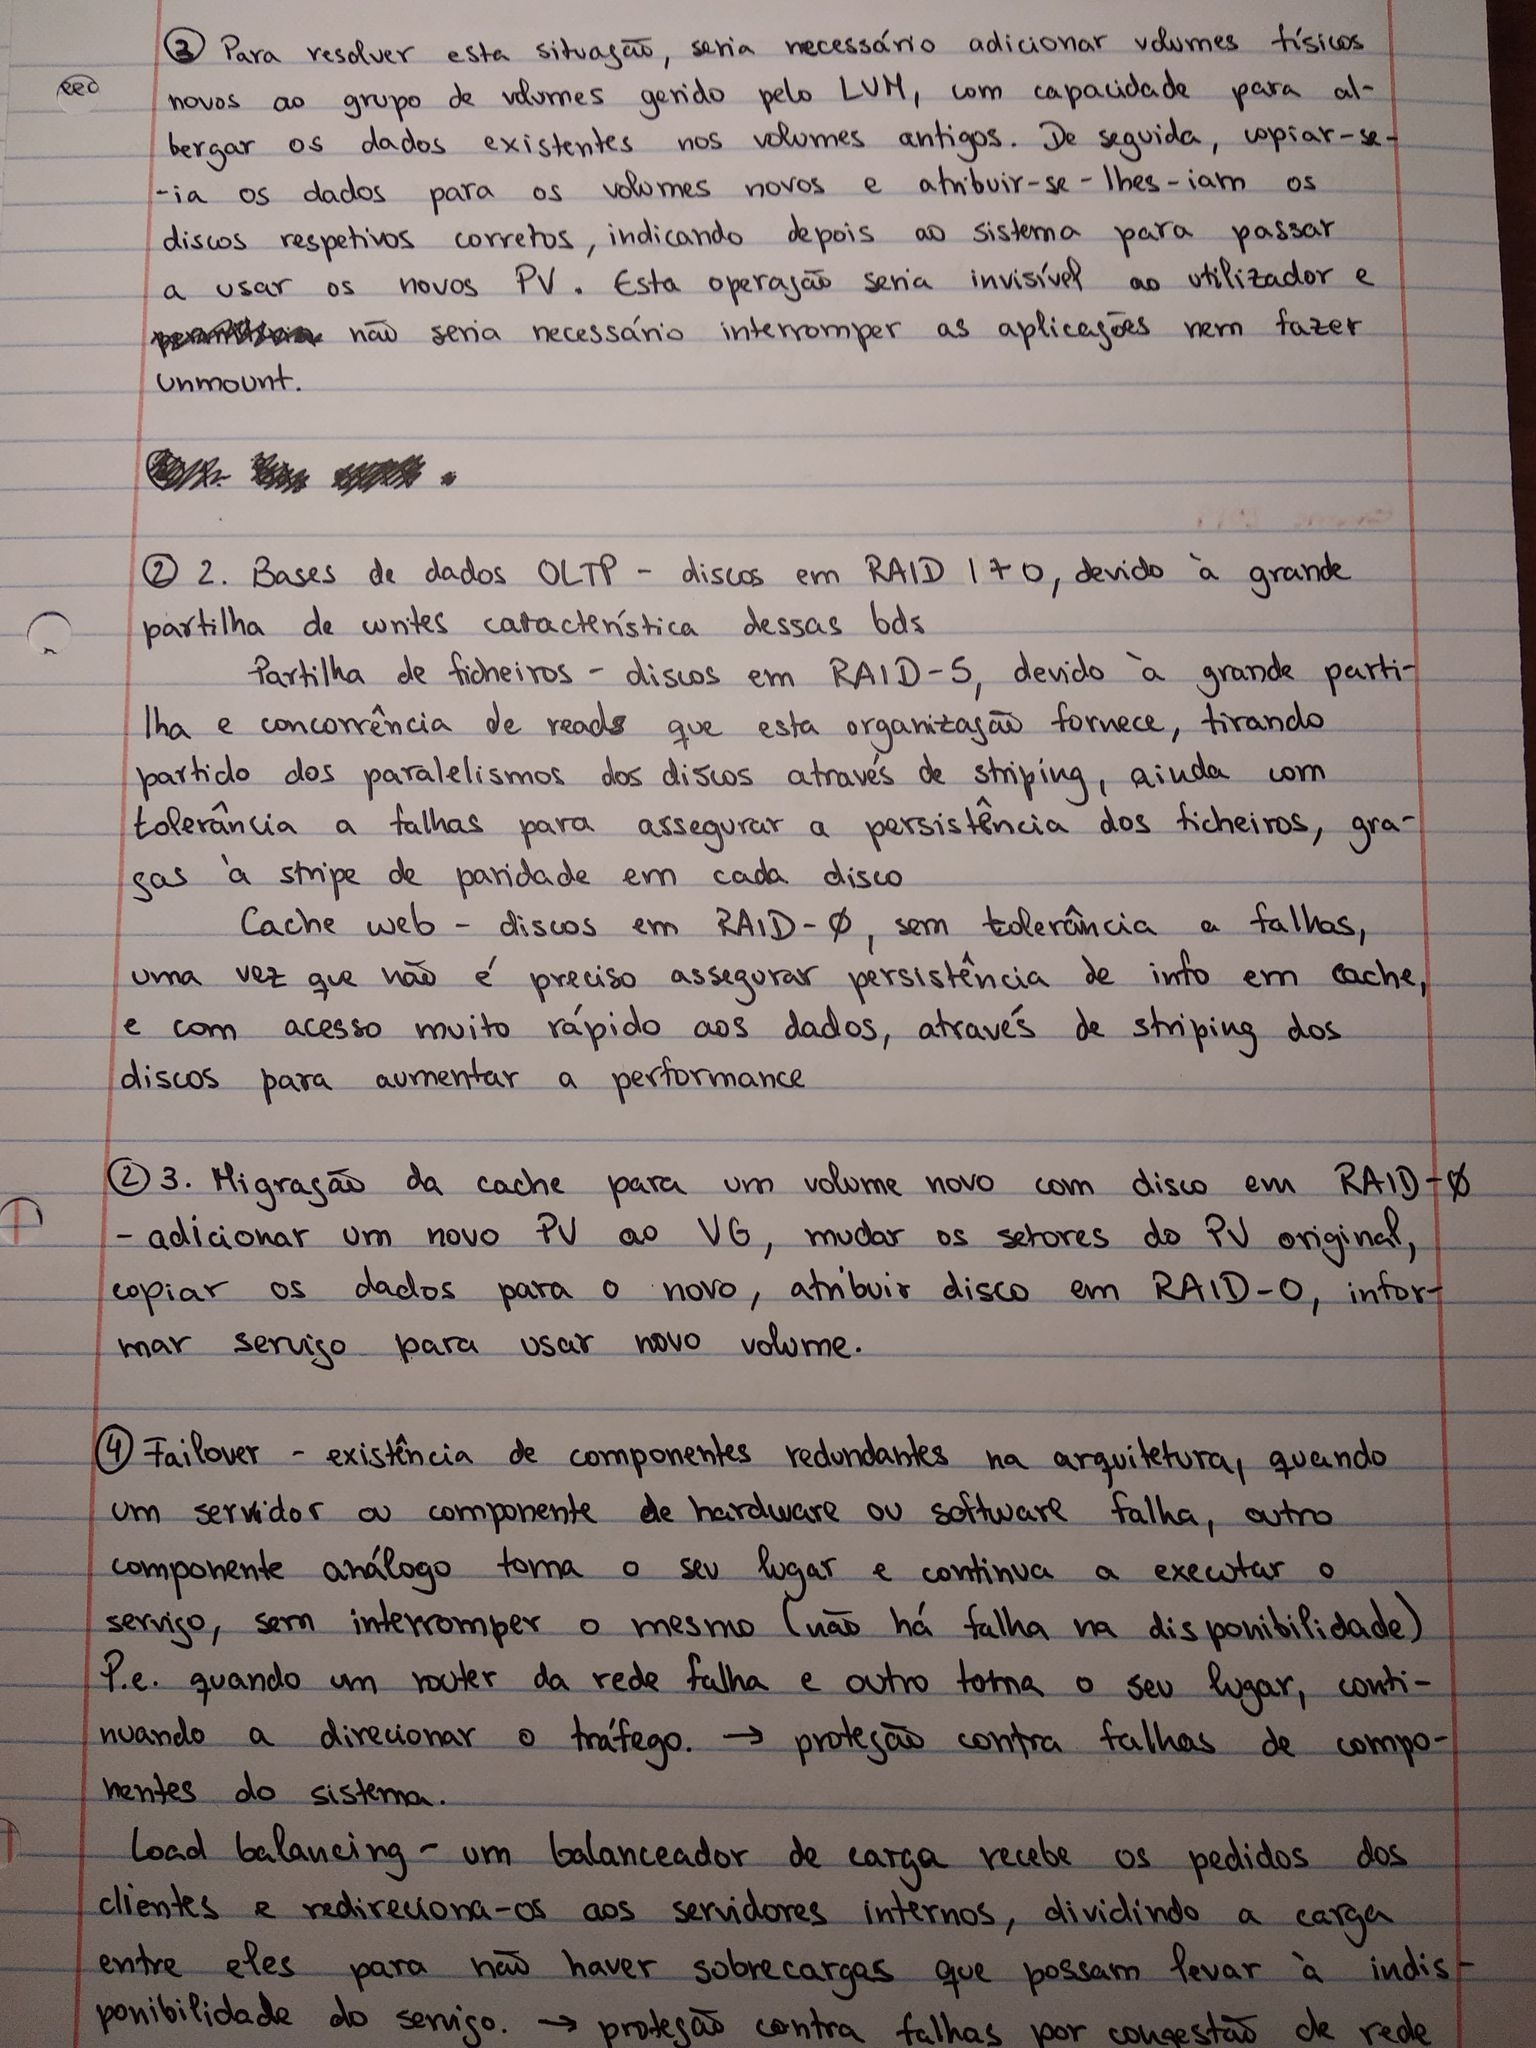 ③ Para resolver esta situação, seria necessário adicionar volumes físicos
novos ao grupo de volumes gerido pelo LVM, com capacidade para al-
bergar os dados existentes nos volumes antigos. De seguida, copiar-se-
-ia os dados para os volumes novos e atribuir-se-lhes-iam os
discos respetivos corretos, indicando depois ao sistema para passar
a usar os novos PV. Esta operação seria invisível ao utilizador e
não seria necessário interromper as aplicações nem fazer
unmount.
② 2. Bases de dados OLTP - discos em RAID 1+0, devido à grande
partilha de writes característica dessas bds
Partilha de ficheiros - discos em RAID-5, devido à grande parti-
lha e concorrência de reads que esta organização fornece, tirando
partido dos paralelismos dos discos através de striping, ainda com
tolerância a falhas para assegurar a persistência dos ficheiros, gra-
ças à stripe de paridade em cada disco
Cache web - discos em RAID-Ø, sem tolerância a falhas,
uma vez que não é preciso assegurar persistência de info em cache,
e com acesso muito rápido aos dados, através de striping dos
discos para aumentar a performance
② 3. Migração da cache para um volume novo com disco em RAID-Ø
- adicionar um novo PV ao VG, mudar os setores do PV original,
copiar os dados para o novo, atribuir disco em RAID-0, infor-
mar serviço para usar novo volume.
④ Failover - existência de componentes redundantes na arquitetura, quando
um servidor ou componente de hardware ou software falha, outro
componente análogo toma o seu lugar e continua a executar o
serviço, sem interromper o mesmo (não há falha na disponibilidade)
P.e. quando um router da rede falha e outro toma o seu lugar, conti-
nuando a direcionar o tráfego. → proteção contra falhas de compo-
nentes do sistema.
Load balancing - um balanceador de carga recebe os pedidos dos
clientes e redireciona-os aos servidores internos, dividindo a carga
entre eles para não haver sobrecargas que possam levar à indis-
ponibilidade do serviço. → proteção contra falhas por congestão de rede